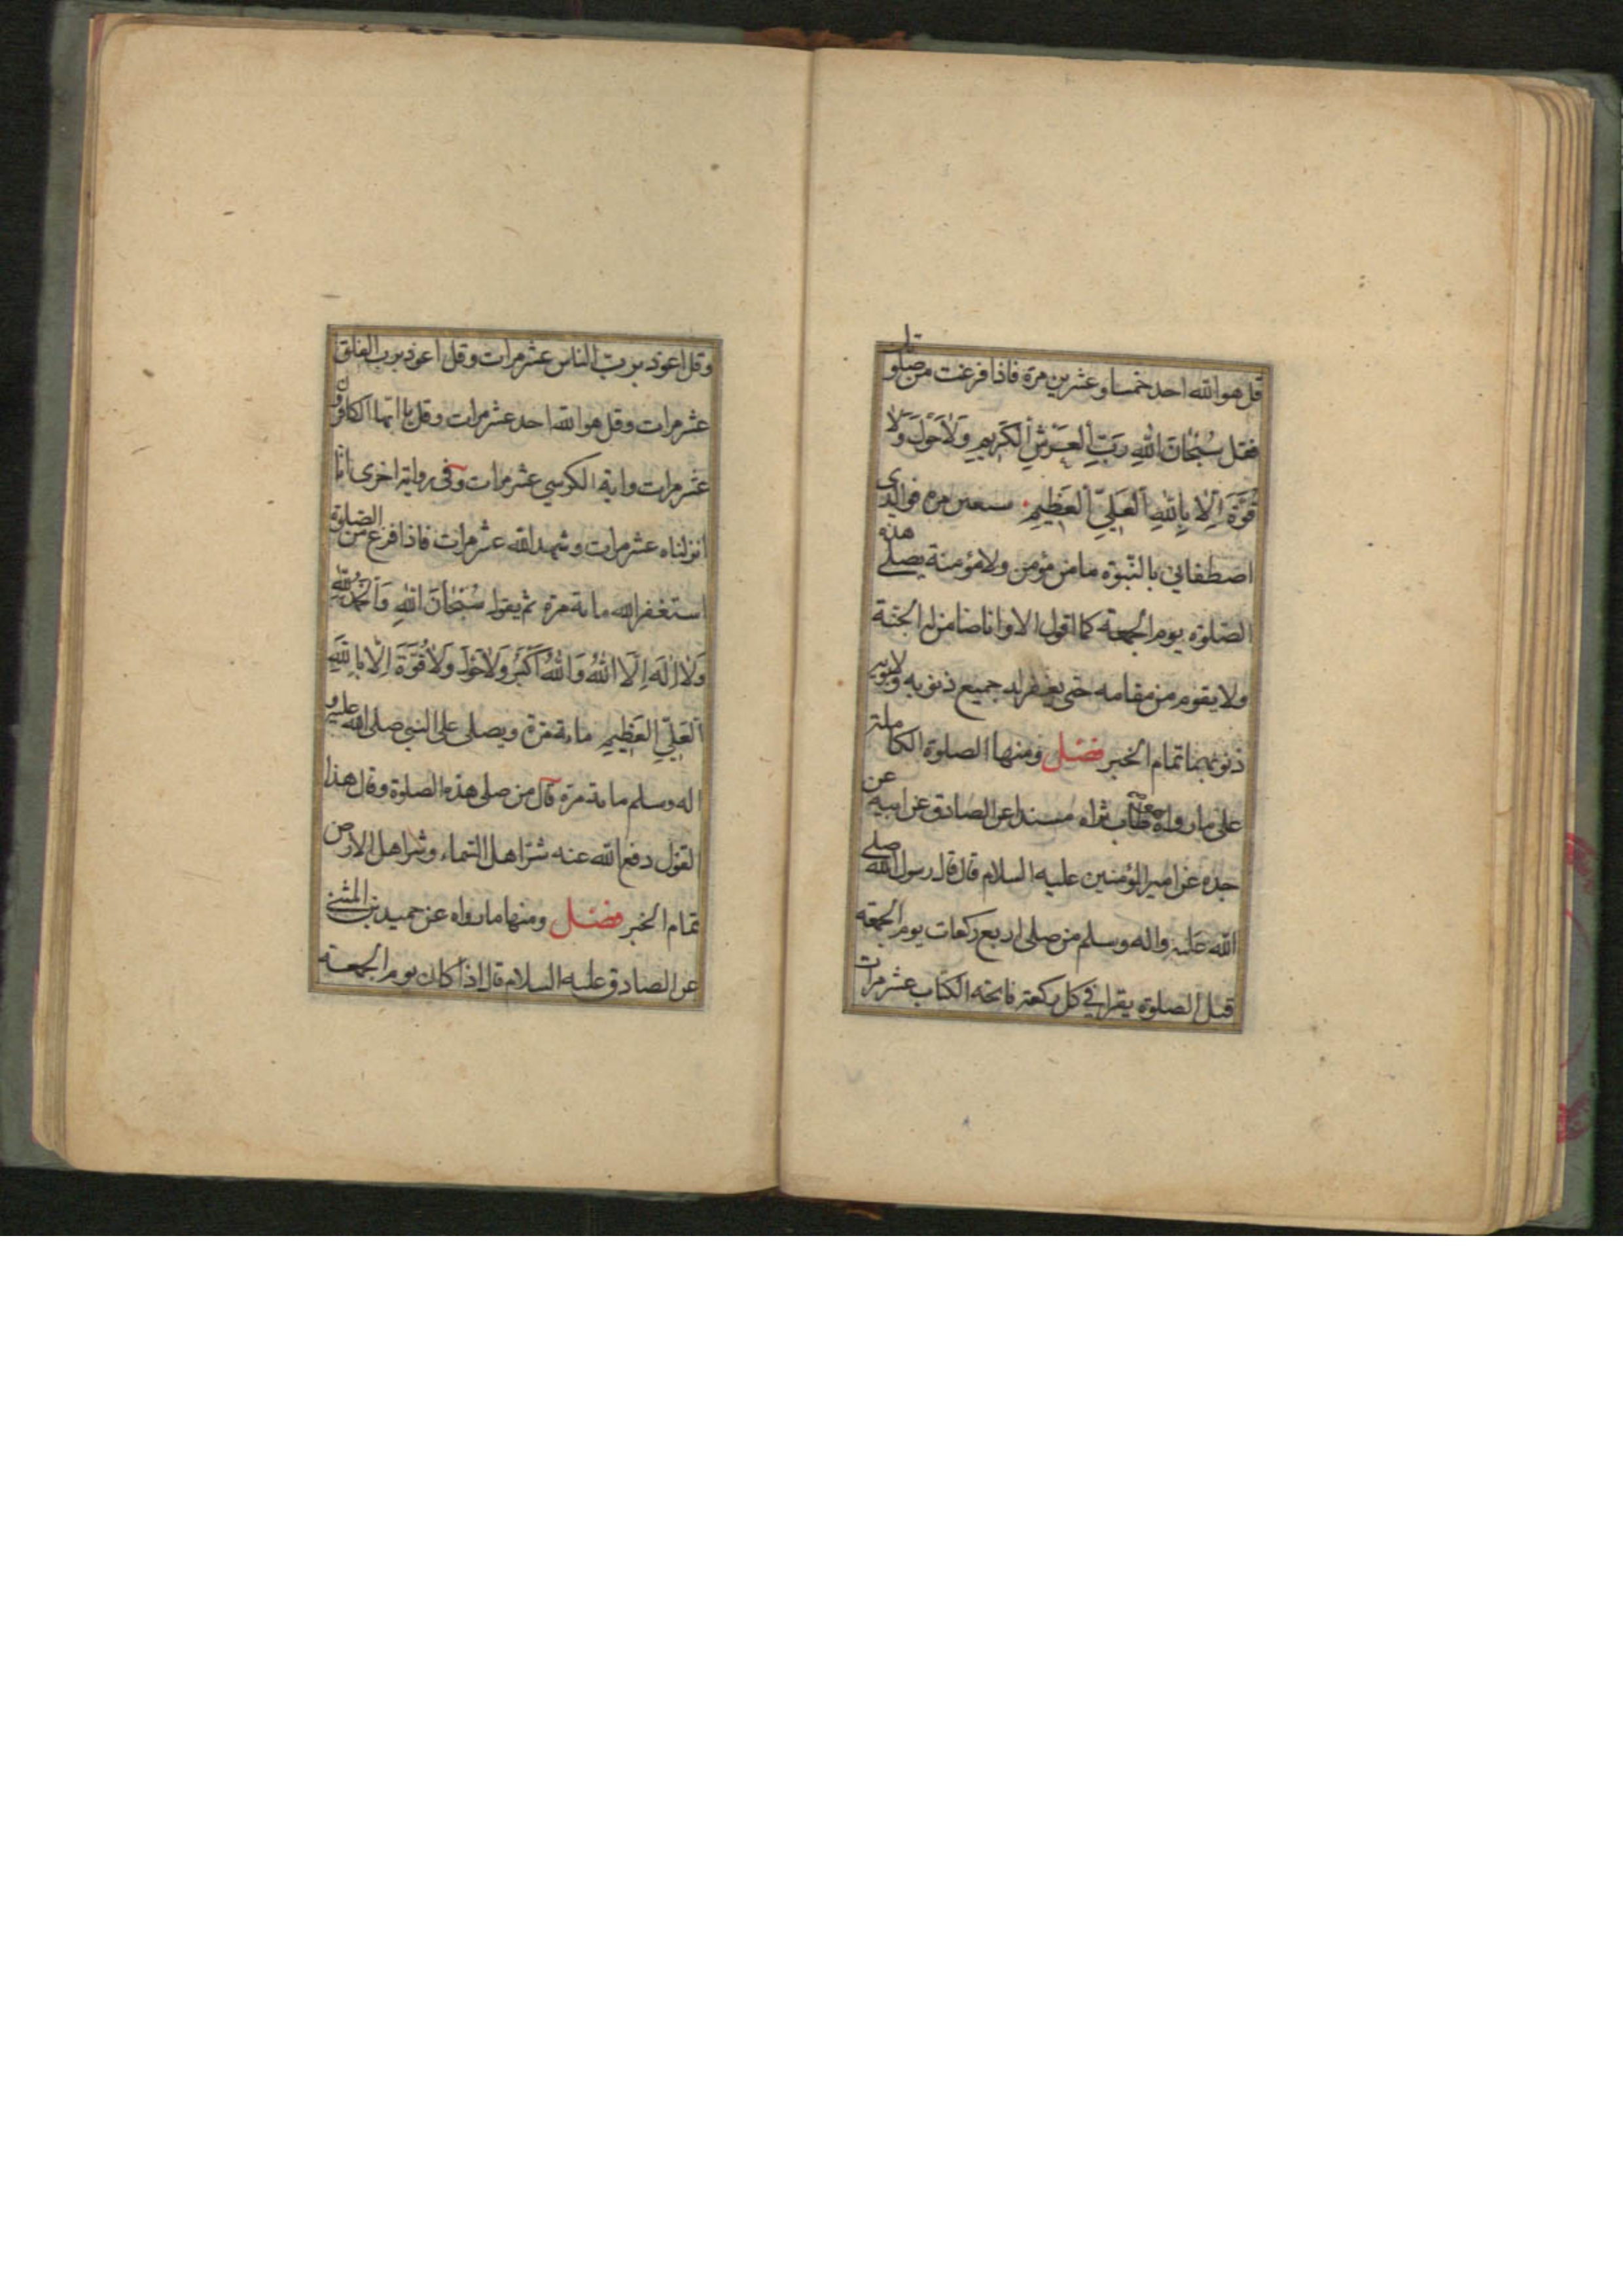 قل هو الله احد خمسا و عشرين مرة فاذا فرغت من صلوتك
فقل سُبْحانَ اللهِ رَبِّ اَلْعَرْشِ اَلْكَريمِ وَلاٰحَوْلَ وَلاٰ
قُوَّةَ اِلاّ بِاللهِ اَلْعَلِيِّ اَلْعَظيمِ سبعين مرة فوالذى
اصطفاني بالنبوة ما من مؤمن ولا مؤمنة يصلى هذه
الصلوة يوم الجمعة كما اقول الا وانا ضامن له الجنة
ولا يقوم من مقامه حتى يغفر له جميع ذنوبه ولابويه
ذنوبهما تمام الخبر فصل ومنها الصلوة الكاملة
على ما رواه طاب ثراه مسندا عن الصادق عن ابيه عن
جده عن امير المؤمنين عليه السلام قال قال رسول الله صلى
الله عليه واله وسلم من صلى اربع ركعات يوم الجمعة
قبل الصلوة يقرا في كل ركعة فاتحة الكتاب عشر مرات
وقل اعوذ برب الناس عشر مرات وقل اعوذ برب الفلق
عشر مرات وقل هو الله احد عشر مرات وقل يا ايها الكافرون
عشر مرات واية الكرسي عشر مرات وفى رواية اخرى انا
انزلناه عشر مرات وشهد الله عشر مرات فاذا فرغ من الصلوة
استغفر الله مائة مرة ثم يقول سُبْحانَ اللهِ وَاَلْحَمْدُ لِلّهِ
وَلاٰ اِلٰهَ اِلَّا اللهُ وَاللهُ اَكْبَرُ وَلاٰحَوْلَ وَلاٰ قُوَّةَ اِلاّ بِاللهِ
اَلْعَلِيِّ اَلْعَظيمِ مائة مرة ويصلى على النبي صلى الله عليه و
اله وسلم مائة مرة قال من صلى هذه الصلوة وقال هذا
القول دفع الله عنه شر اهل السماء وشر اهل الارض
تمام الخبر فصل ومنها ما رواه عن حميد بن المثنى
عن الصادق عليه السلام قال اذا كان يوم الجمعة